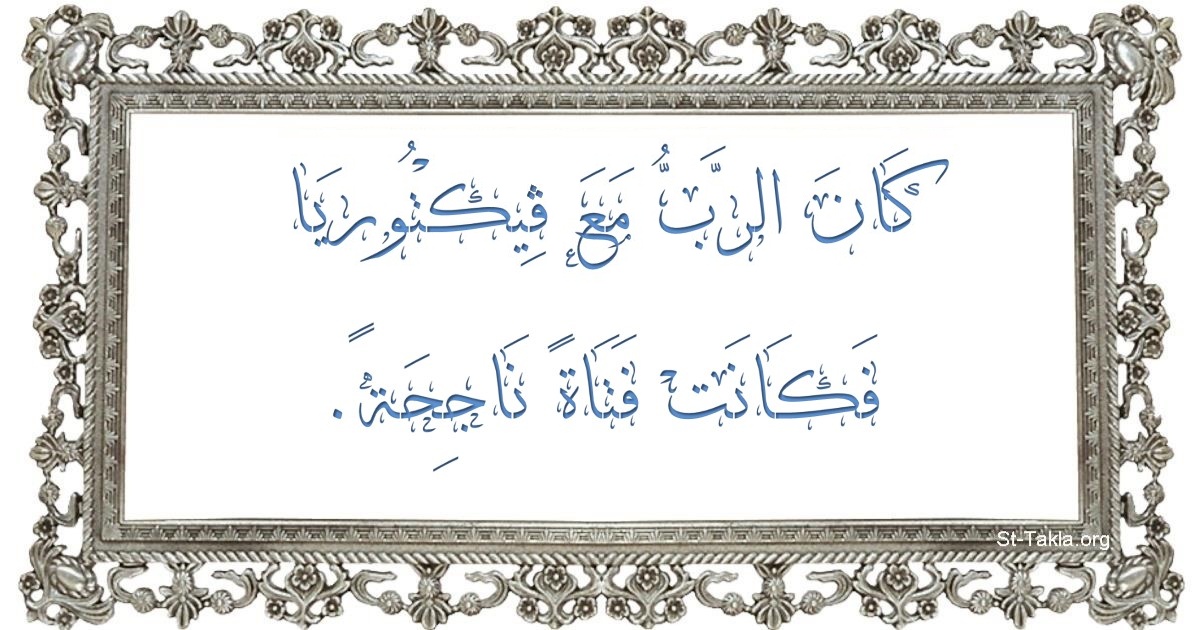 كَانَ الرَّبُّ مَعَ ڤِيكْتُورِيَا
فَكَانَت فَتَاةً نَاجِحَةً.
St-Takla.org